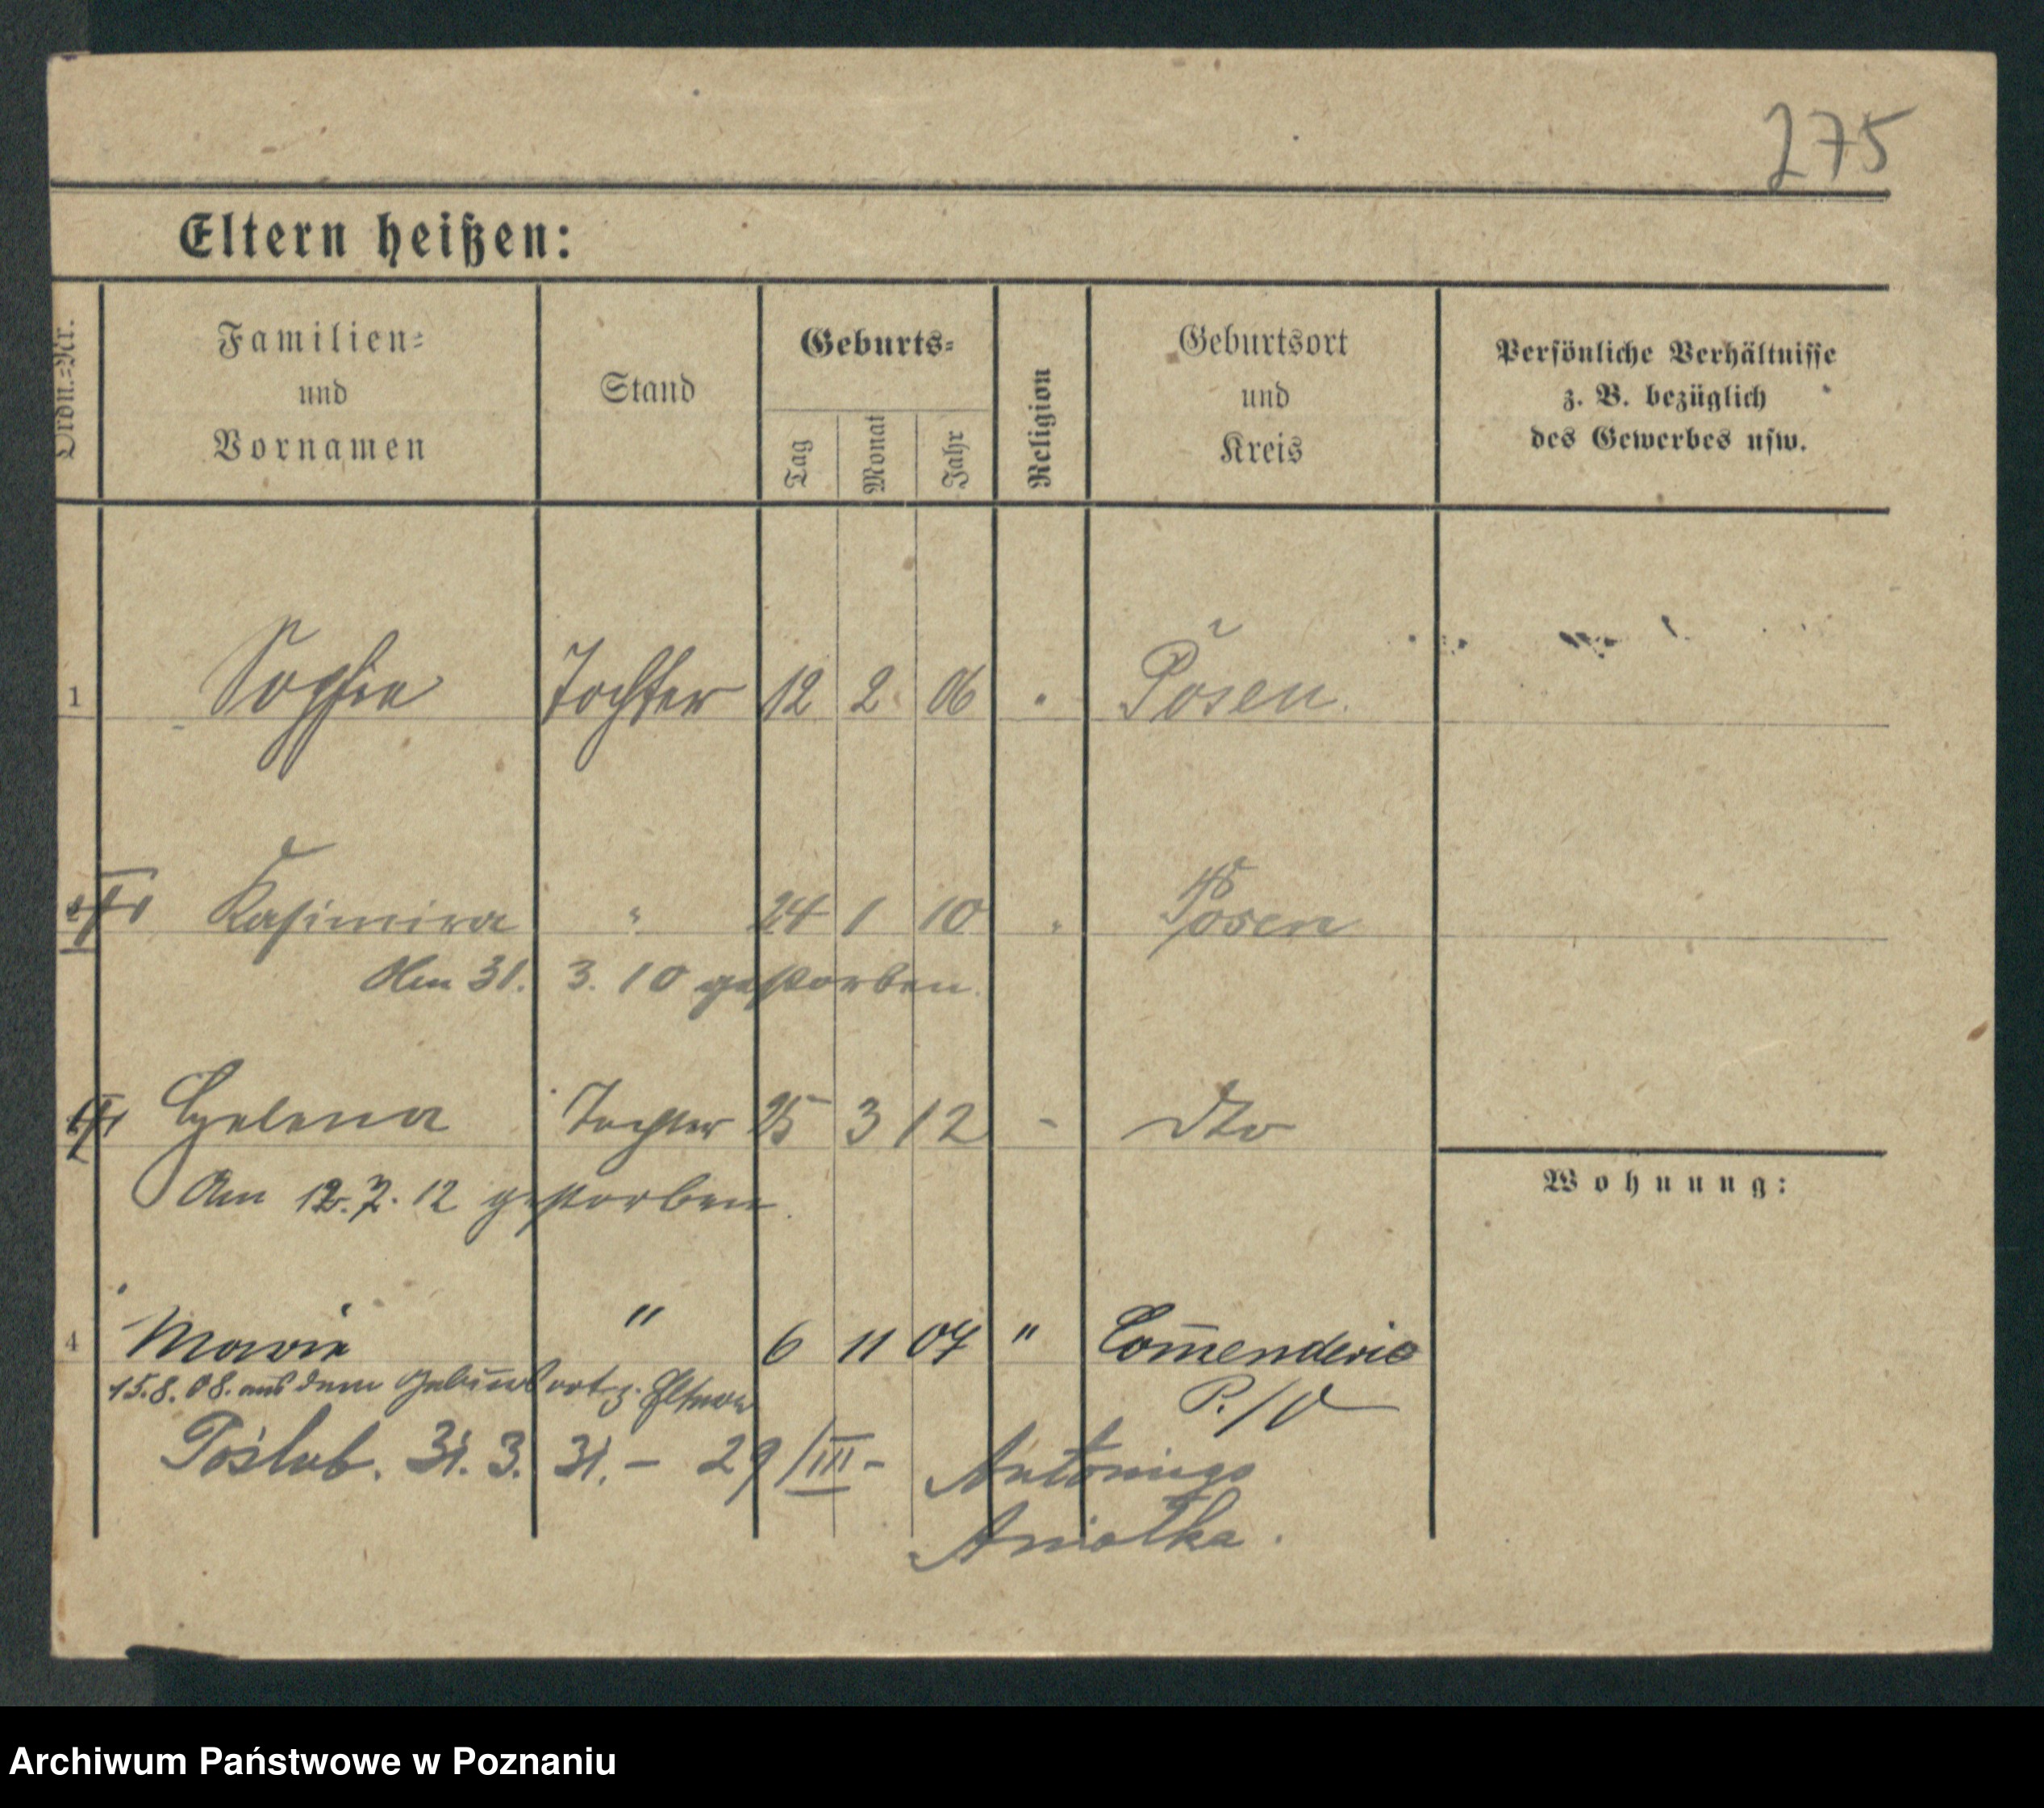 275
Eltern heißen:
Ordn.-Nr.
Familien-
und
Vornamen
Stand
Geburts-
Tag
Monat
Jahr
Religion
Geburtsort
und
Kreis
Persönliche Verhältnisse
z. B. bezüglich
des Gewerbes usw.
1 Sophie Tochter 12 2 06 " Posen.
Kasimira " 24 1 10 " Posen
Am 31. 3. 10 gestorben.
Helena Tochter 25 3 12 - dto
Am 12. 7. 12 gestorben.
Wohnung:
4 Marie " 6 11 07 " Commenderie
15.8.08. aus dem Geburtsort z. Eltern
P./O
Poślub. 31. 3. 31. - 29/III - Antoniego
Aniołka.
Archiwum Państwowe w Poznaniu